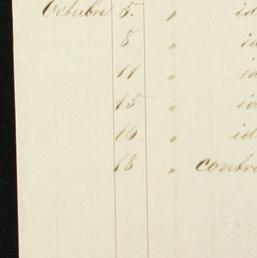 Octubre 5. " id
8 " id
11 " id
15 " id
16 " id
18 " contra